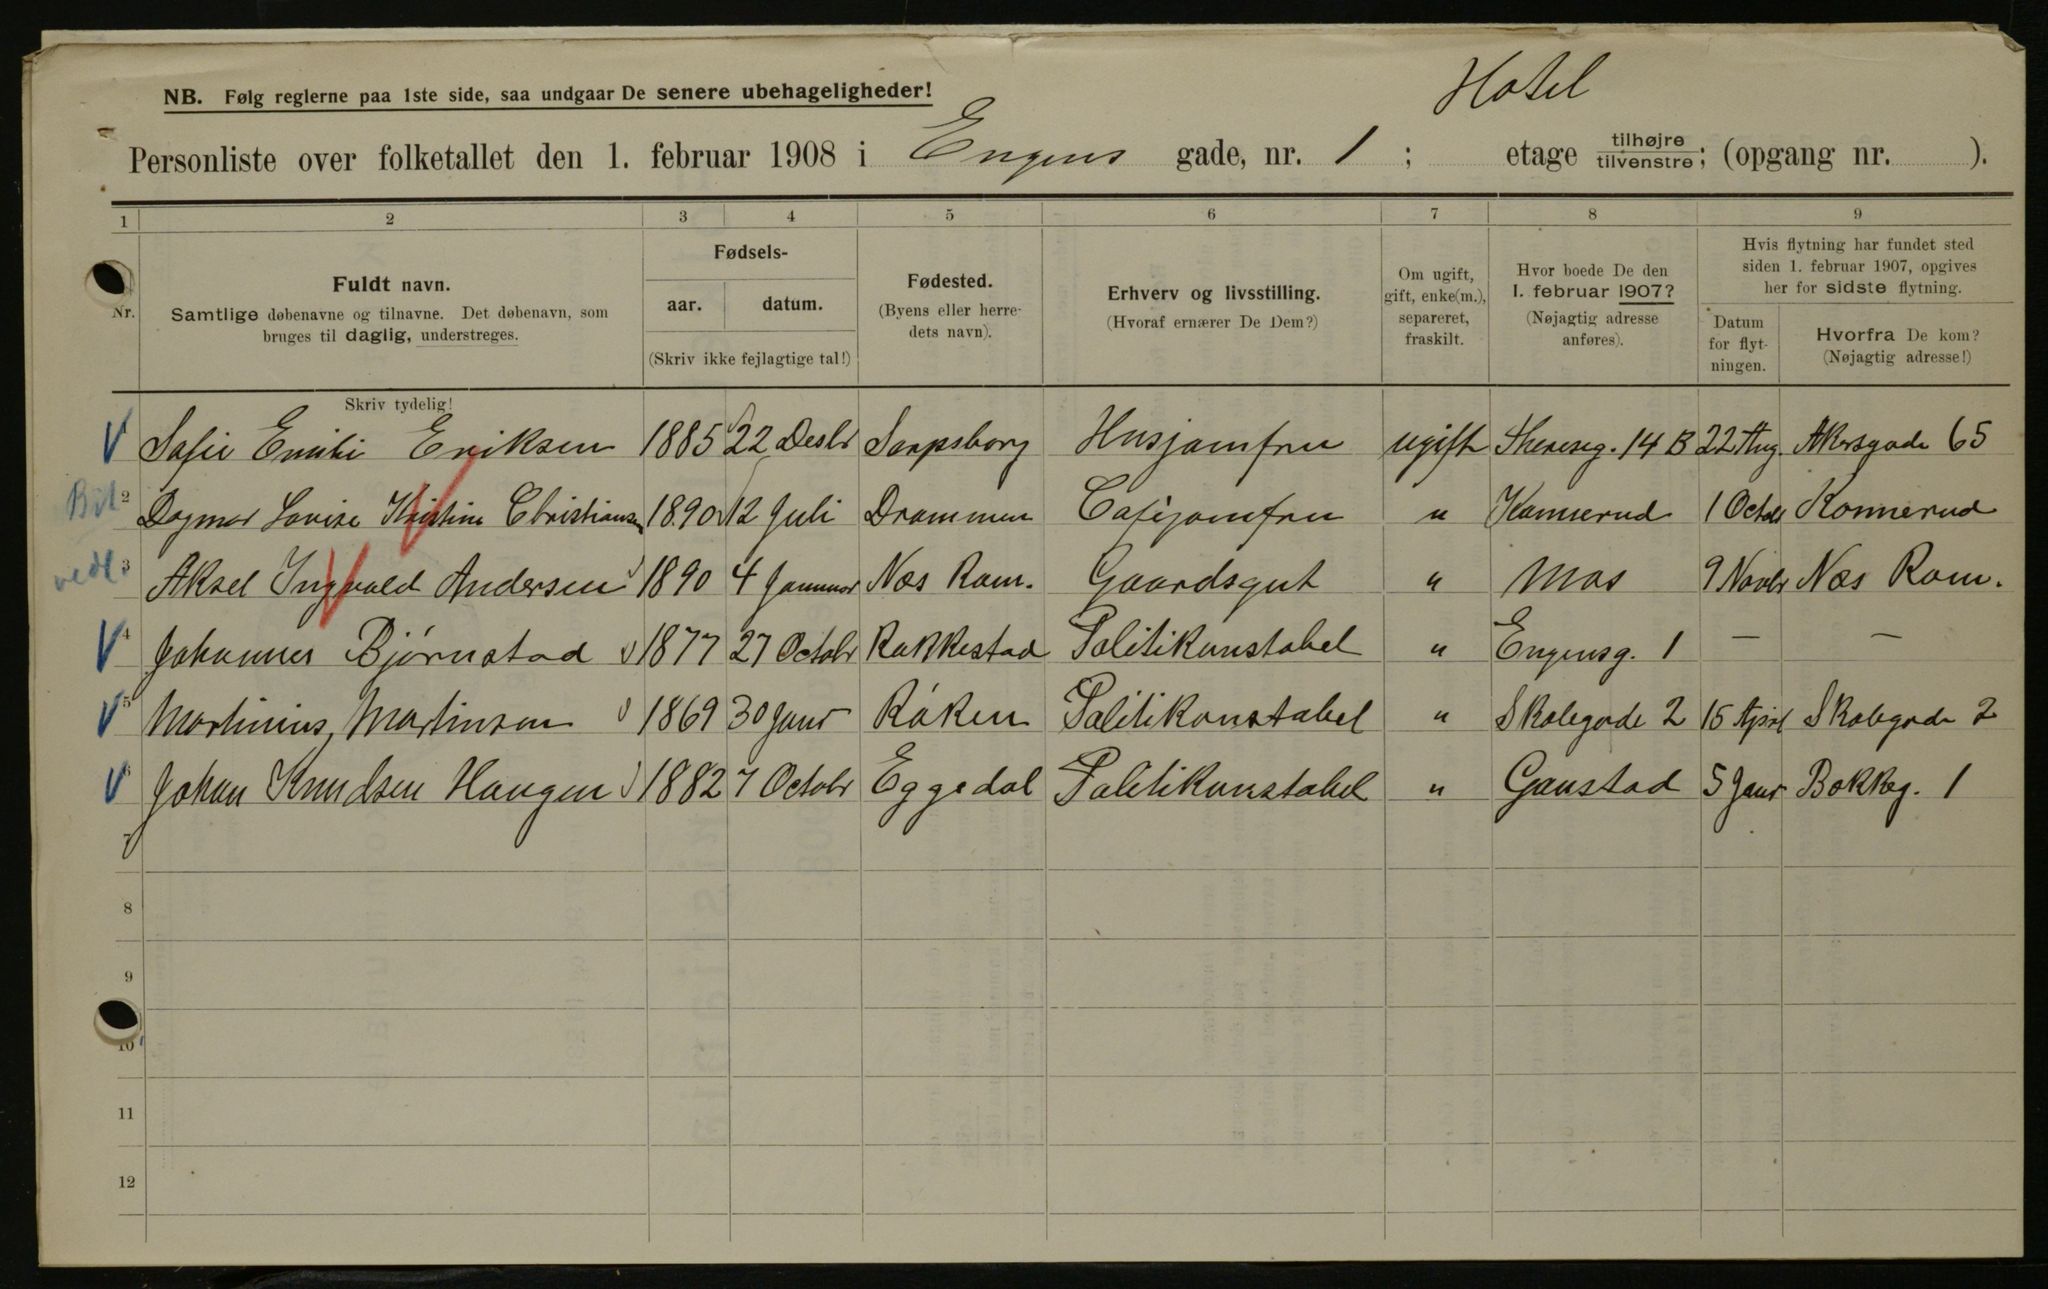 Hotel
NB. Følg reglerne paa 1ste side, saa undgaar De senere ubehageligheder!
Personliste over folketallet den 1. februar 1908 i Engens gade, nr. 1 ; etage tilhøjre tilvenstre; (opgang nr. ).
1 2 3 4 5 6 7 8 9
Nr.
Fuldt navn.
Samtlige døbenavne og tilnavne. Det døbenavn, som
bruges til daglig, understreges.
Skriv tydelig!
Fødsels-
aar. datum.
(Skriv ikke fejlagtige tal!)
Fødested.
(Byens eller herre-
dets navn).
Erhverv og livsstilling.
(Hvoraf ernærer De Dem?)
Om ugift,
gift, enke(m.),
separeret,
fraskilt.
Hvor boede De den
1. februar 1907?
(Nøjagtig adresse
anføres).
Hvis flytning har fundet sted
siden 1. februar 1907, opgives
her for sidste flytning.
Datum
for flyt-
ningen.
Hvorfra De kom?
(Nøjagtig adresse!)
Sofie Emilie Eriksen 1885 22 Desbr Sarpsborg Husjomfru ugift Thereseg. 14 B 22 Aug. Akersgade 65
2 Dagmar Lovise Kristine Christiansen 1890 12 Juli Drammen Cafejomfru " Konnerud 1 Octobr Konnerud
vedl. 3 Aksel Ingvald Andersen 1890 4 Januar Nes Rom. Gaardsgut " Mos 9 Novbr Nes Rom.
4 Johannes Bjørnstad 1877 27 Octobr Rakkestad Politikonstabel " Engensg. 1 — —
5 Martinius Martinsen 1869 30 Janr Røken Politikonstabel " Skolegade 2 15 April Skolegade 2
6 Johan Knudsen Haugen 1882 7 Octobr Eggedal Politikonstabel " Gaustad 5 Janr Bakkeg. 1
7
8
9
10
11
12